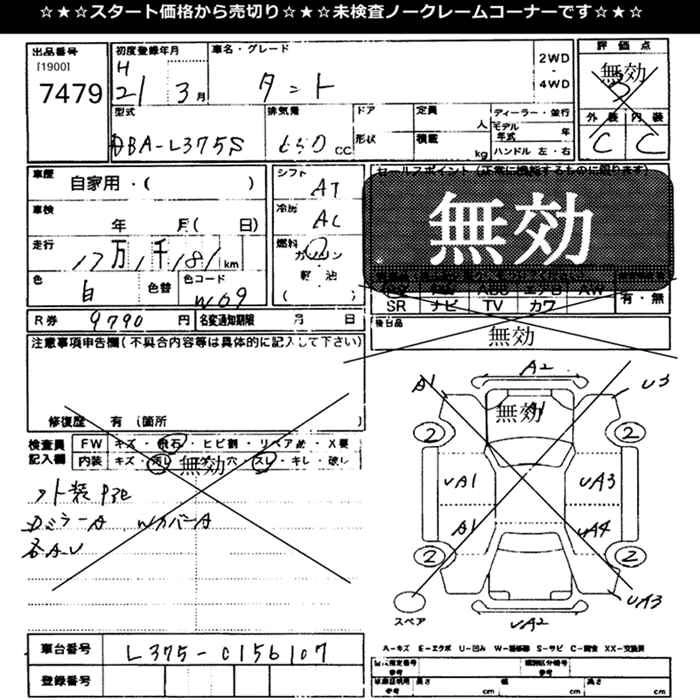 ☆★☆スタート価格から売切り☆★☆未検査ノークレームコーナーです☆★☆
出品番号
[1900]
7479
初度登録年月
H
21 3月
車名・グレード
タント
2WD
・
4WD
評価点
無効
3
外装 内装
C C
型式
DBA-L375S
排気量
650 CC
ドア
形状
定員 人
積載 kg
ディーラー・並行
モデル年式 年
ハンドル 左・右
車歴
自家用・( )
シフト
AT
セールスポイント(正常に機能するものに限ります)
無効
車検
年 月( 日)
冷房
AC
走行
17万1千181km
燃料
ガソリン
軽油
( )
色
白
色替
色コード
W09
SR ナビ TV カワ
有・無
R券 9790円
名変通知期限 月 日
後日品
無効
注意事項申告欄(不具合内容等は具体的に記入して下さい)
修復歴 有(箇所
検査員記入欄
FW キズ・飛石・ヒビ割・リペア跡・X要
内装 キズ・汚レ・コゲ・穴・スレ・キレ・破レ
無効
外装
ミラーA WカバーA
各AU
A1 A2 U3
無効
A1
2 2
UA1 UA3
A1 UA4
2 2
スペア
UA2
UA3
車台番号 L375-0156107
登録番号
A-キズ E-エクボ U-凹み W-補修跡 S-サビ C-腐食 XX-交換済
長さ cm 幅 cm 高さ cm